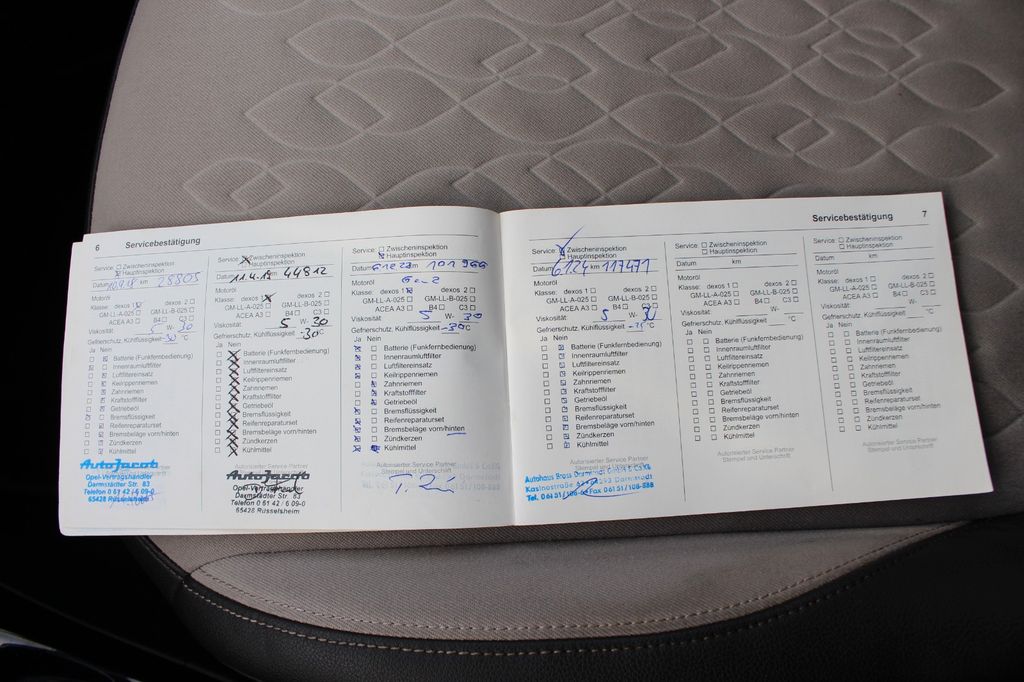 6 Servicebestätigung
Service: Zwischeninspektion
Hauptinspektion
Datum km 28805
Motoröl
Klasse: dexos 1 dexos 2
GM-LL-A-025 GM-LL-B-025
ACEA A3 B4 C3
Viskosität 5 W- 30
Gefrierschutz, Kühlflüssigkeit -30 °C
Ja Nein
Batterie (Funkfernbedienung)
Innenraumluftfilter
Luftfiltereinsatz
Keilrippenriemen
Zahnriemen
Kraftstofffilter
Getriebeöl
Bremsflüssigkeit
Reifenreparaturset
Bremsbeläge vorn/hinten
Zündkerzen
Kühlmittel
AutoJacob
Opel-Vertragshändler
Darmstädter Str. 83
Telefon 0 61 42 / 6 09-0
65428 Rüsselsheim
Service: Zwischeninspektion
Hauptinspektion
Datum 11.4.19 km 44812
Motoröl
Klasse: dexos 1 dexos 2
GM-LL-A-025 GM-LL-B-025
ACEA A3 B4 C3
Viskosität 5 W- 30
Gefrierschutz, Kühlflüssigkeit -30 °C
Ja Nein
Batterie (Funkfernbedienung)
Innenraumluftfilter
Luftfiltereinsatz
Keilrippenriemen
Zahnriemen
Kraftstofffilter
Getriebeöl
Bremsflüssigkeit
Reifenreparaturset
Bremsbeläge vorn/hinten
Zündkerzen
Kühlmittel
Autorisierter Service Partner
AutoJacob
Opel-Vertragshändler
Darmstädter Str. 83
Telefon 0 61 42 / 6 09-0
65428 Rüsselsheim
Service: Zwischeninspektion
Hauptinspektion
Datum km 101 966
Motoröl Gen 2
Klasse: dexos 1 dexos 2
GM-LL-A-025 GM-LL-B-025
ACEA A3 B4 C3
Viskosität 5 W- 30
Gefrierschutz, Kühlflüssigkeit -30 °C
Ja Nein
Batterie (Funkfernbedienung)
Innenraumluftfilter
Luftfiltereinsatz
Keilrippenriemen
Zahnriemen
Kraftstofffilter
Getriebeöl
Bremsflüssigkeit
Reifenreparaturset
Bremsbeläge vorn/hinten
Zündkerzen
Kühlmittel
Autorisierter Service Partner
Stempel und Unterschrift
Servicebestätigung 7
Service: Zwischeninspektion
Hauptinspektion
Datum 6.1.24 km 117471
Motoröl
Klasse: dexos 1 dexos 2
GM-LL-A-025 GM-LL-B-025
ACEA A3 B4 C3
Viskosität 5 W- 30
Gefrierschutz, Kühlflüssigkeit -35 °C
Ja Nein
Batterie (Funkfernbedienung)
Innenraumluftfilter
Luftfiltereinsatz
Keilrippenriemen
Zahnriemen
Kraftstofffilter
Getriebeöl
Bremsflüssigkeit
Reifenreparaturset
Bremsbeläge vorn/hinten
Zündkerzen
Kühlmittel
Autorisierter Service Partner
Autohaus Brass Darmstadt GmbH & Co.KG
Kasinostraße 62 64293 Darmstadt
Tel. 06151/108-0 Fax 06151/108-888
Service: Zwischeninspektion
Hauptinspektion
Datum km
Motoröl
Klasse: dexos 1 dexos 2
GM-LL-A-025 GM-LL-B-025
ACEA A3 B4 C3
Viskosität W-
Gefrierschutz, Kühlflüssigkeit °C
Ja Nein
Batterie (Funkfernbedienung)
Innenraumluftfilter
Luftfiltereinsatz
Keilrippenriemen
Zahnriemen
Kraftstofffilter
Getriebeöl
Bremsflüssigkeit
Reifenreparaturset
Bremsbeläge vorn/hinten
Zündkerzen
Kühlmittel
Autorisierter Service Partner
Stempel und Unterschrift
Service: Zwischeninspektion
Hauptinspektion
Datum km
Motoröl
Klasse: dexos 1 dexos 2
GM-LL-A-025 GM-LL-B-025
ACEA A3 B4 C3
Viskosität W-
Gefrierschutz, Kühlflüssigkeit °C
Ja Nein
Batterie (Funkfernbedienung)
Innenraumluftfilter
Luftfiltereinsatz
Keilrippenriemen
Zahnriemen
Kraftstofffilter
Getriebeöl
Bremsflüssigkeit
Reifenreparaturset
Bremsbeläge vorn/hinten
Zündkerzen
Kühlmittel
Autorisierter Service Partner
Stempel und Unterschrift